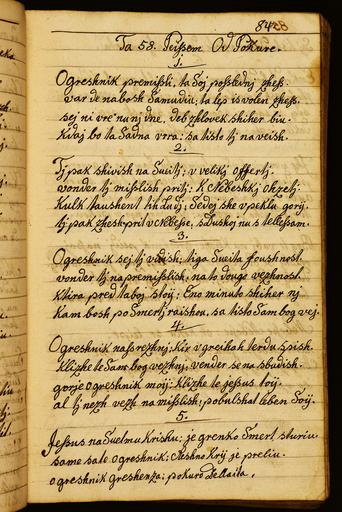 8485
Ta 58. Peissem Od Pokure.
1.
Ogreshnik premissli, ta Soj poslednj zhess.
var de nabosh Samudiu; ta lep isvolen zhess.
sej ni vre nu nj dne, deb zhlovek shiher biu.
Kidaj bo ta Sadna vrra; sa tisto tj na veish.
2.
Tj pak shivish na Sveitj; v velikj offertj.
vonder tj misslish pritj; K Nebeshkj ohzetj.
Kulk taushent ludij; Sedej she vpeklu gorij.
tj pak zhesh prit v Nebesse, sdushoj nu s tellessam.
3.
Ogreshnik sej tj veish; tiga Sveita foushnost.
vonder tj na premisslish, na to dougo vezhnost.
Ktira pred taboj stoij; Ene minuto shiher nj
Kam bosh po Smertj raishou, sa tisto Sam bog vej.
4.
Ogreshnik nassrezhnj; kir v greihah terdu spish.
Klizhe te Sam bog vezhnj, vender se na sbudish.
gorje ogreshnik moij; Klizhe te jesus toij.
al tj nezh vezh na misslish; pobulshat leben Soij.
5.
Jessus na Svetmu Krishu; je grenko Smert sturiu
some sate ogreshnik; Neshno Krij je preliu.
ogreshnik greshenza; pokuro dellaita.